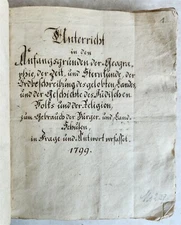 Unterricht
in den
Anfangsgründen der Geogra-
phie, der Zeit, und Sternkunde, der
Erdbeschreibung des gelobten Landes,
und der Geschichte des Jüdischen
Volks und der Religion,
zum Gebrauch der Bürger- und Land-
Schulen,
in Frage und Antwort verfasset.
1799.